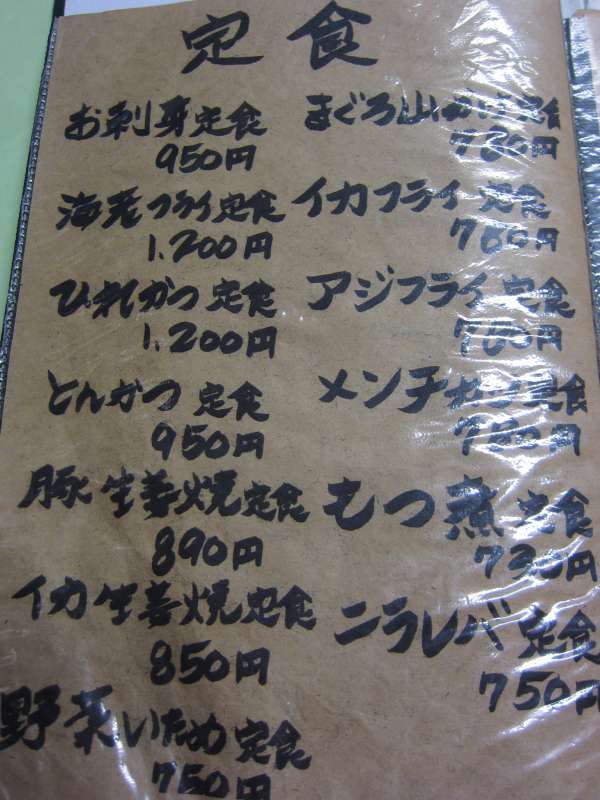 定食
お刺身定食
950円
海老フライ定食
1,200円
ひれかつ定食
1,200円
とんかつ定食
950円
豚生姜焼定食
890円
イカ生姜焼定食
850円
野菜いため定食
750円
まぐろ山かけ定食
780円
イカフライ定食
700円
アジフライ定食
メンチかつ定食
780円
もつ煮定食
730円
ニラレバ定食
750円